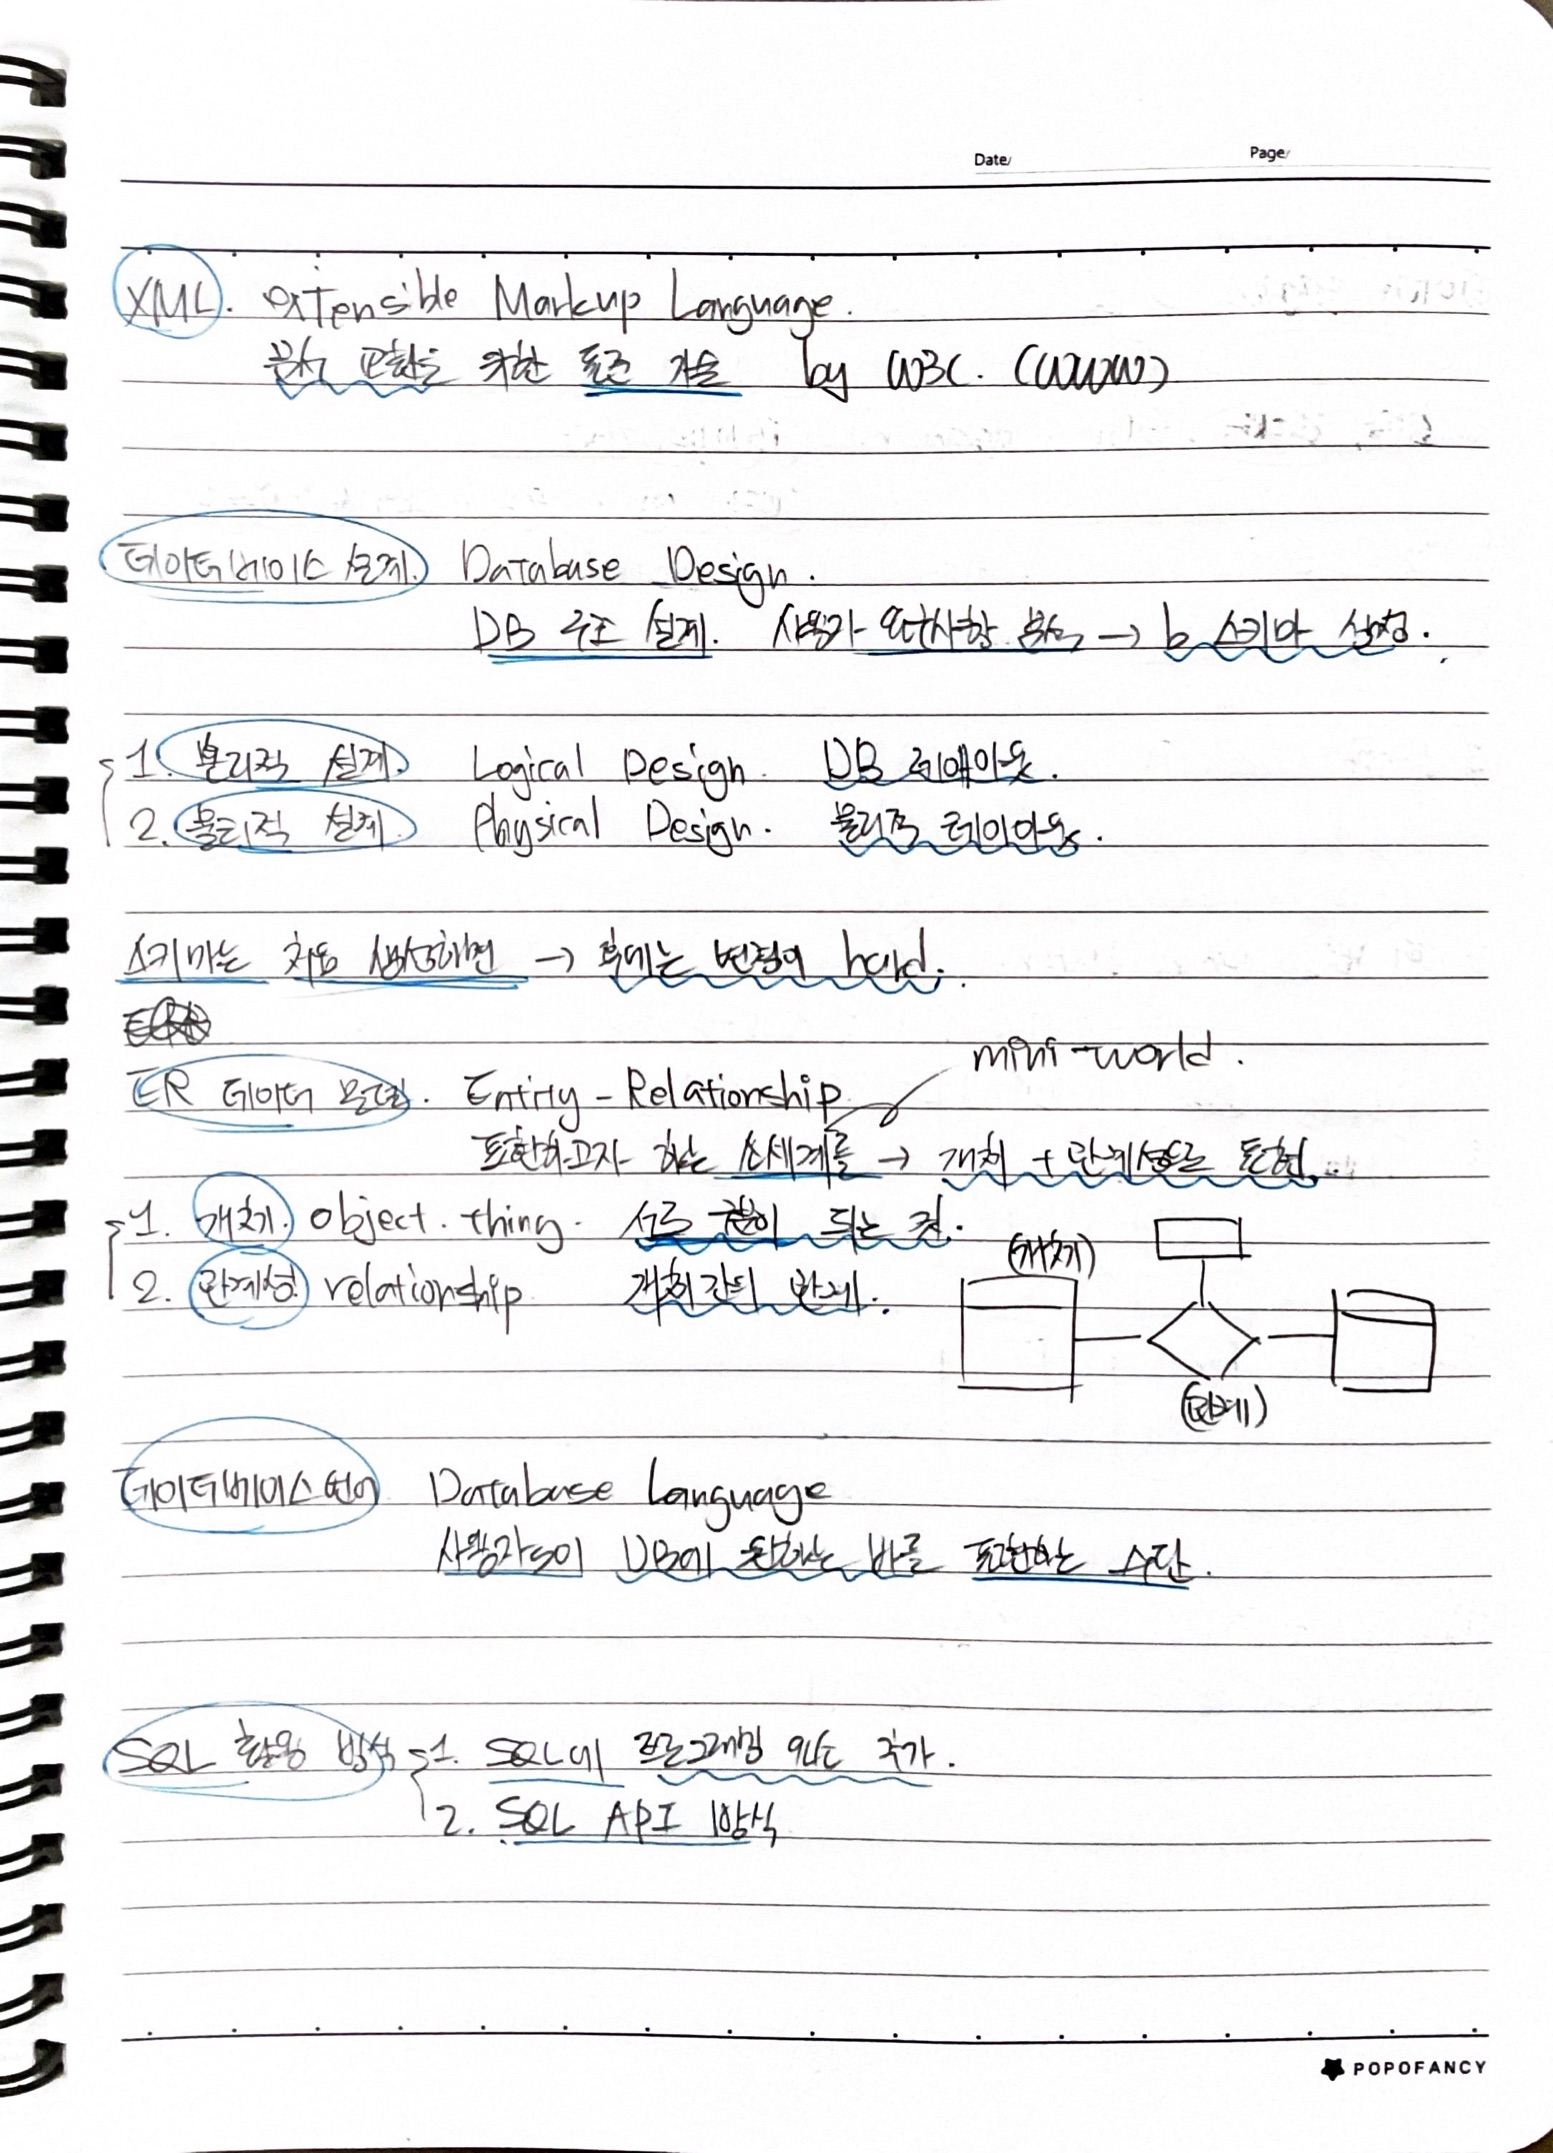 Date/ Page/
XML. extensible Markup Language.
문서 교환을 위한 표준 기술 by W3C. (WWW)
데이터베이스 설계. Database Design.
DB 구조 설계. 사용자 요구사항 분석 → b 스키마 설정.
1. 논리적 설계. Logical Design. DB 레이아웃.
2. 물리적 설계. Physical Design. 물리적 레이아웃.
스키마는 처음 생성하면 → 후에는 변경이 hard.
mini-world.
ER 데이터 모델. Entity-Relationship
표현하고자 하는 소세계를 → 개체 + 관계성으로 표현.
1. 개체. object. thing. 서로 구분이 되는 것.
2. 관계성 relationship 개체 간의 관계.
(개체)
(관계)
데이터베이스 언어 Database Language
사용자들이 DB에 원하는 바를 표현하는 수단.
SQL 활용 방식 1. SQL에 프로그래밍 언어 추가.
2. SQL API 방식
POPOFANCY